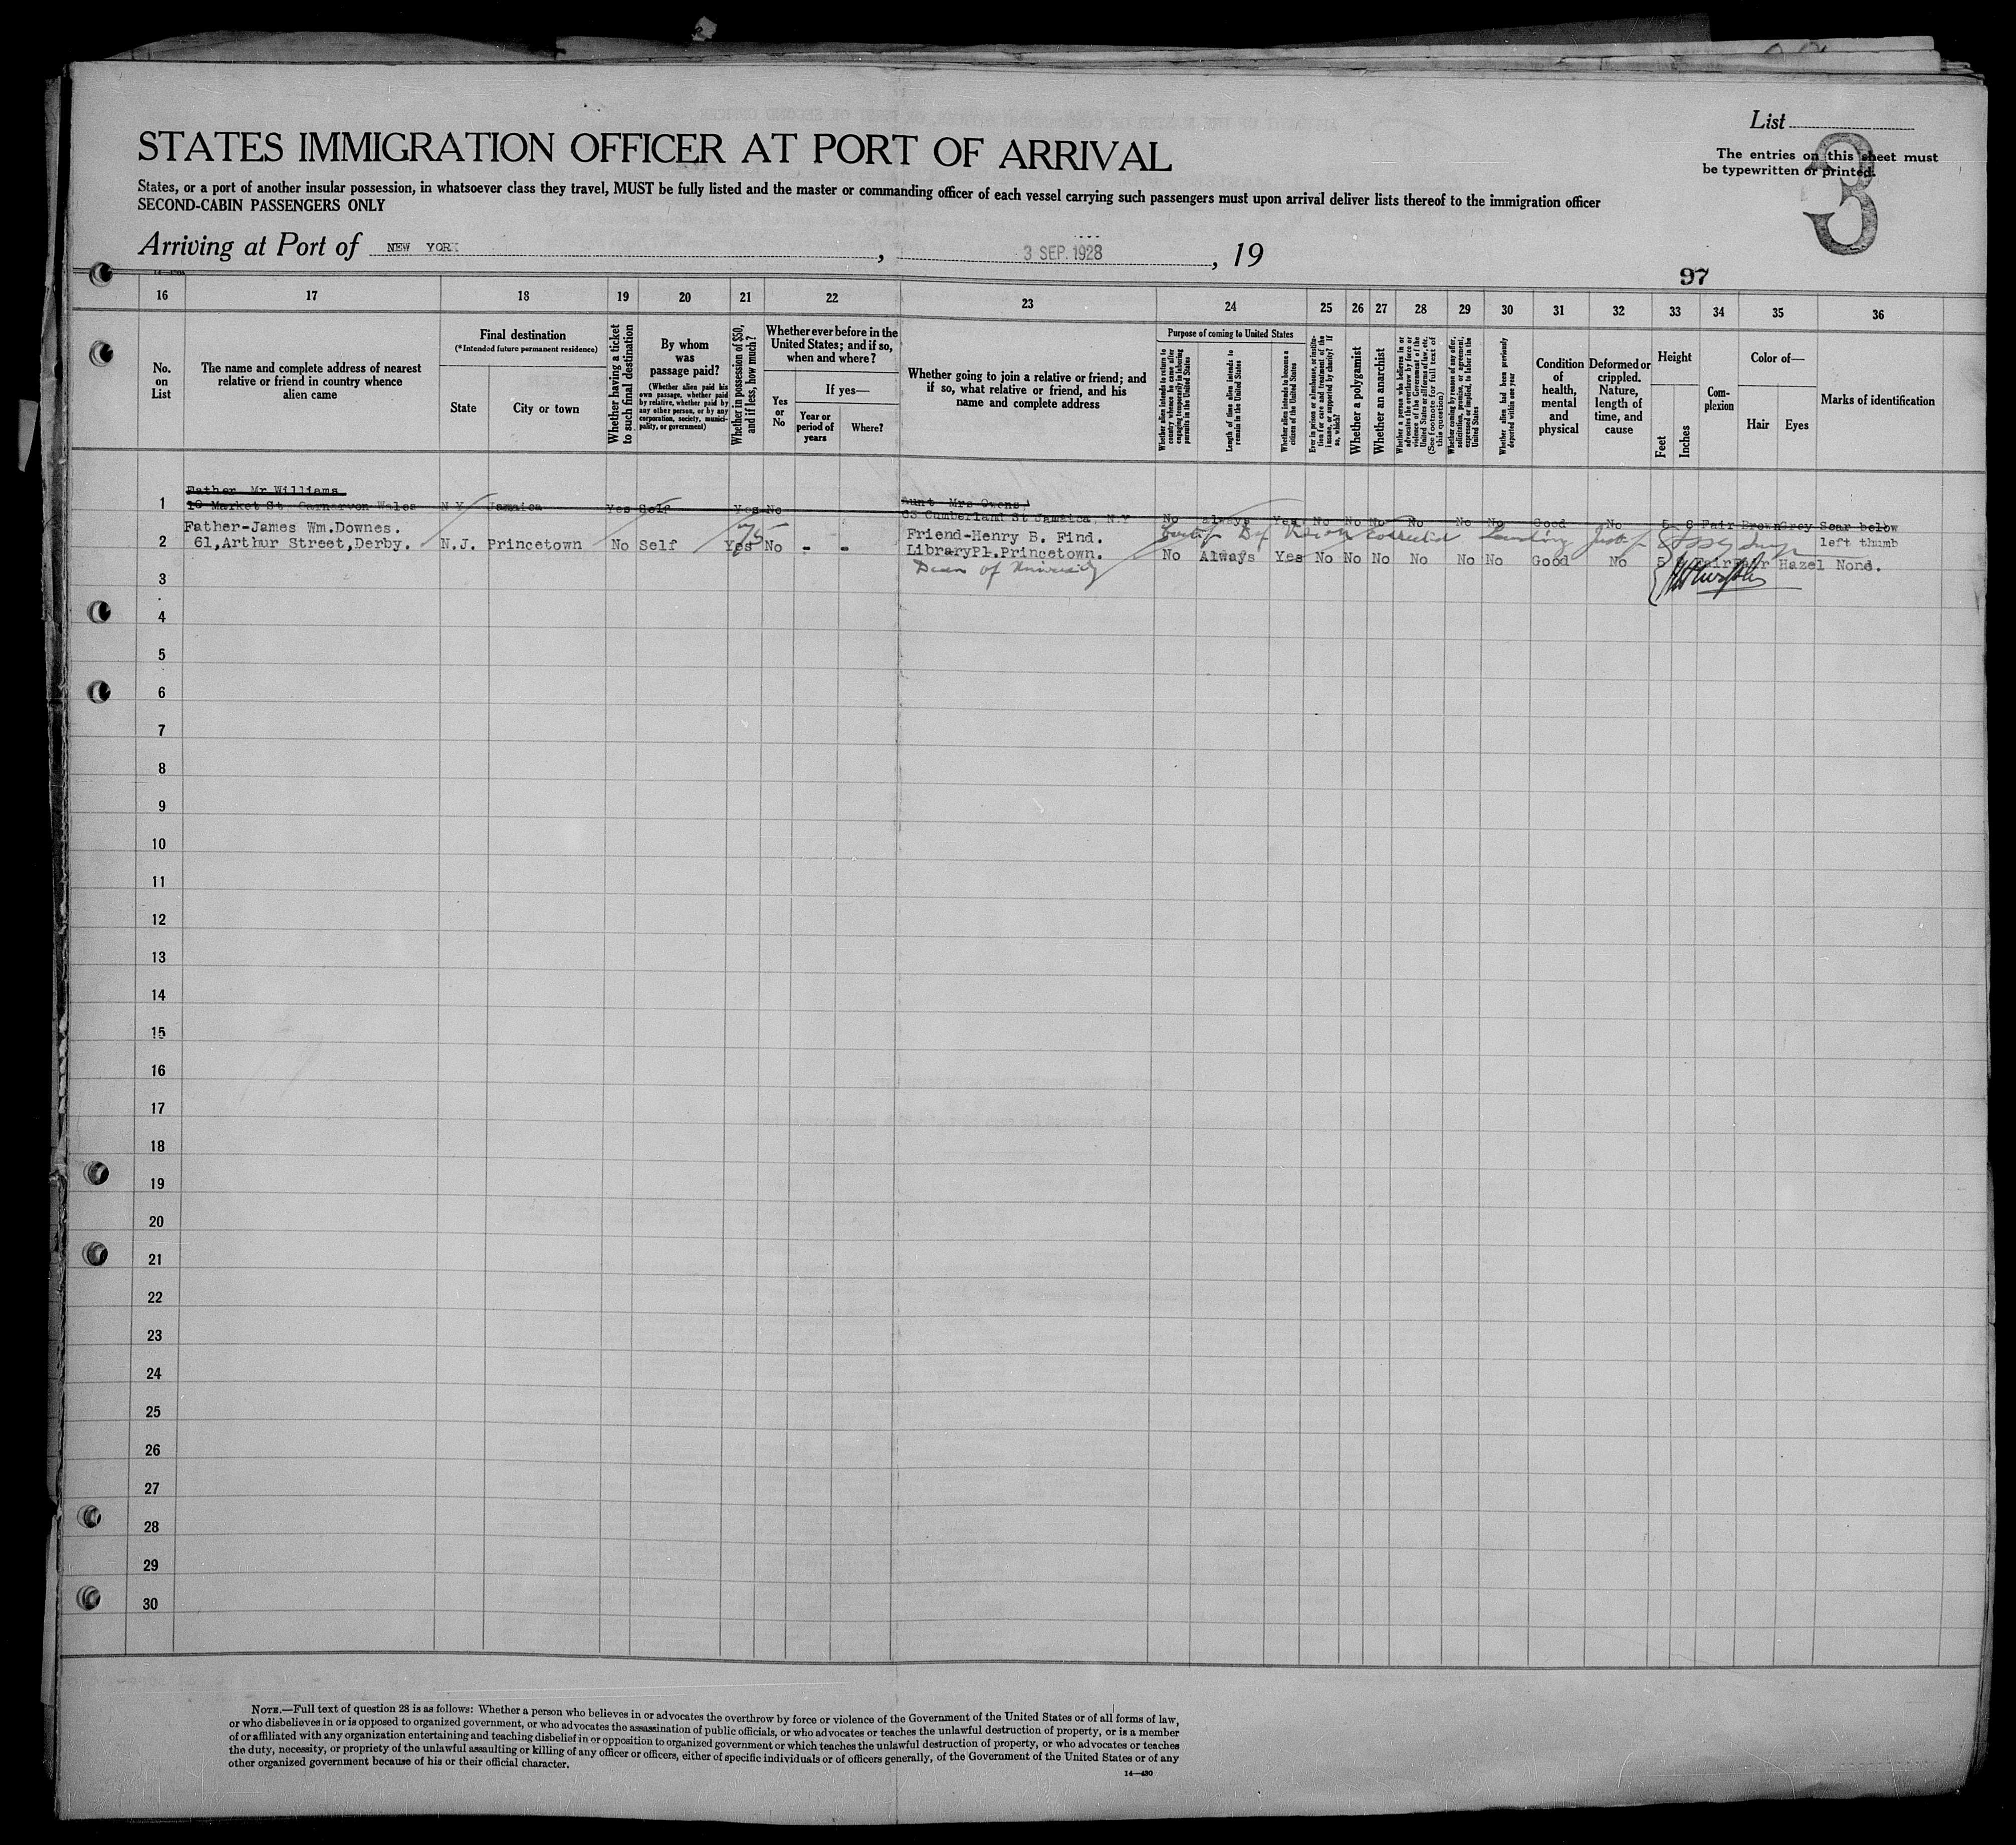 List
The entries on this sheet must
be typewritten or printed.
3
STATES IMMIGRATION OFFICER AT PORT OF ARRIVAL
States, or a port of another insular possession, in whatsoever class they travel, MUST be fully listed and the master or commanding officer of each vessel carrying such passengers must upon arrival deliver lists thereof to the immigration officer
SECOND-CABIN PASSENGERS ONLY
Arriving at Port of NEW YORK, 3 SEP. 1928, 19
97
16 17 18 19 20 21 22 23 24 25 26 27 28 29 30 31 32 33 34 35 36
No.
on
List
The name and complete address of nearest
relative or friend in country whence
alien came
Final destination
(*Intended future permanent residence)
State
City or town
Whether having a ticket
to such final destination
By whom
was
passage paid?
(Whether alien paid his
own passage, whether paid
by relative, whether paid by
any other person, or by any
corporation, society, munici-
pality, or government)
Whether in possession of $50,
and if less, how much?
Whether ever before in the
United States; and if so,
when and where?
Yes
or
No
If yes—
Year or
period of
years
Where?
Whether going to join a relative or friend; and
if so, what relative or friend, and his
name and complete address
Purpose of coming to United States
Whether alien intends to return to
country whence he came after
engaging temporarily in laboring
pursuits in the United States
Length of time alien intends to
remain in the United States
Whether alien intends to become a
citizen of the United States
Ever in prison or almshouse, or institu-
tion for care and treatment of the
insane, or supported by charity? If
so, which?
Whether a polygamist
Whether an anarchist
Whether a person who believes in or
advocates the overthrow by force or
violence of the Government of the
United States or all forms of law, etc.
(See footnote for full text of
this question)
Whether coming by reason of any offer,
solicitation, promise, or agreement,
expressed or implied, to labor in the
United States
Whether alien had been previously
deported within one year
Condition
of
health,
mental
and
physical
Deformed or
crippled.
Nature,
length of
time, and
cause
Height
Feet
Inches
Com-
plexion
Color of—
Hair
Eyes
Marks of identification
Father Mr Williams
1 10 Market St Carnarvon Wales N Y Jamaica Yes Self Yes No
Aunt Mrs Owens
63 Cumberland St Jamaica, N.Y No always Yes No No No No No No Good No 5 6 Fair Brown Grey Scar below
left thumb
75
Father-James Wm.Downes.
2 61,Arthur Street,Derby. N.J. Princetown No Self Yes No - -
Friend-Henry B. Find.
LibraryPl.Princetown. No Always Yes No No No No No No Good No 5 Fair Hazel None.
Dean of University
3
4
5
6
7
8
9
10
11
12
13
14
15
16
17
18
19
20
21
22
23
24
25
26
27
28
29
30
NOTE.—Full text of question 28 is as follows: Whether a person who believes in or advocates the overthrow by force or violence of the Government of the United States or of all forms of law,
or who disbelieves in or is opposed to organized government, or who advocates the assassination of public officials, or who advocates or teaches the unlawful destruction of property, or is a member
of or affiliated with any organization entertaining and teaching disbelief in or opposition to organized government or which teaches the unlawful destruction of property, or who advocates or teaches
the duty, necessity, or propriety of the unlawful assaulting or killing of any officer or officers, either of specific individuals or of officers generally, of the Government of the United States or of any
other organized government because of his or their official character.
14—430